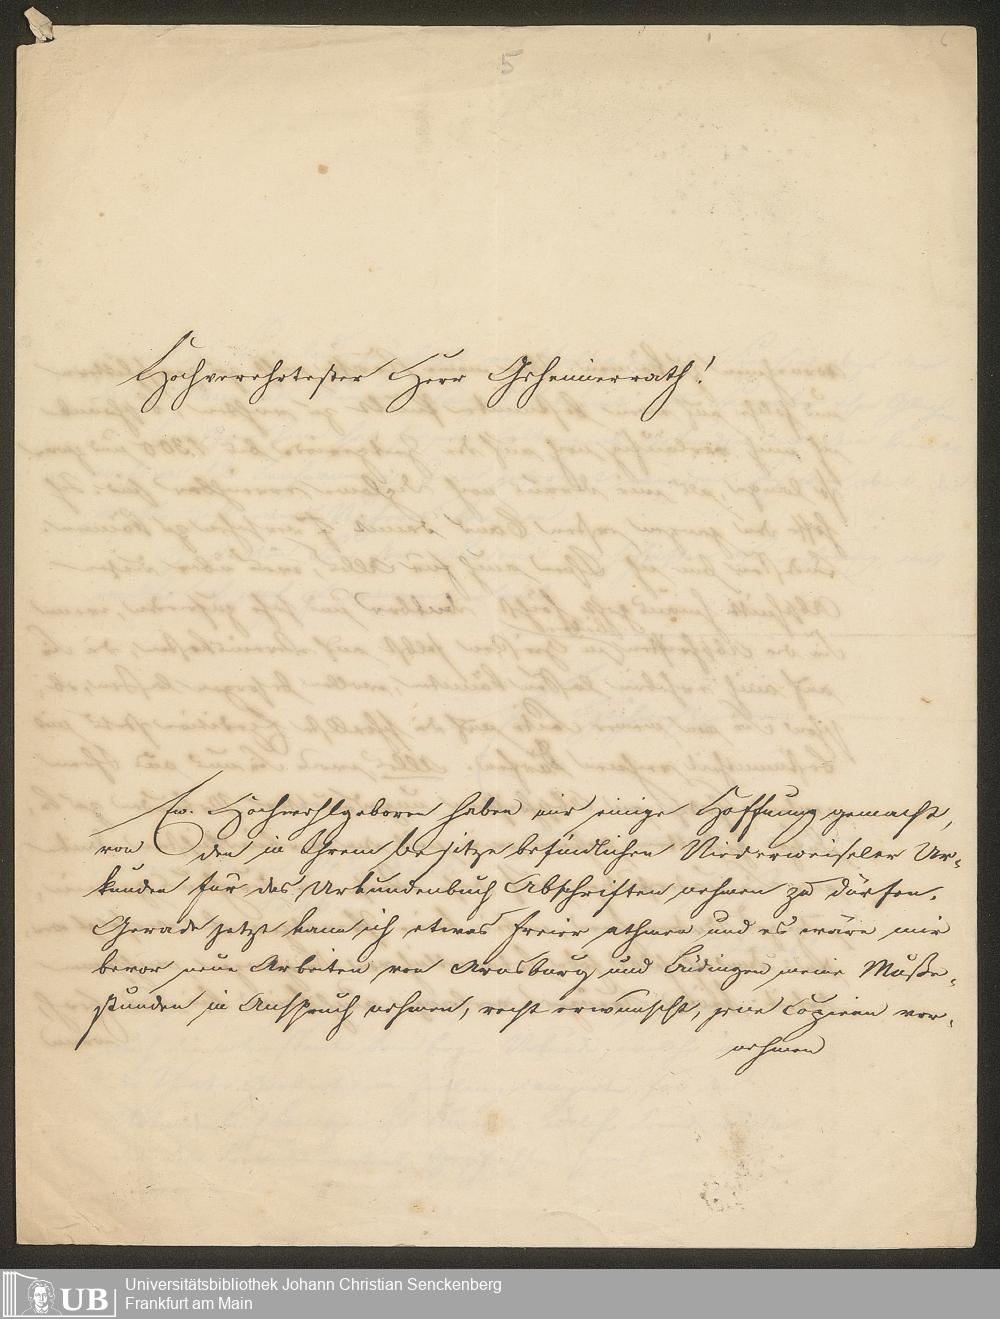 5
Hochverehrtester Herr Geheimerrath!
Ew. Hochwohlgeboren haben mir einige Hoffnung gemacht,
von den in Ihrem Besitze befindlichen Niederweiseler Ur-
kunden für das Urkundenbuch Abschriften nehmen zu dürfen.
Gerade jetzt kann ich etwas freier athmen und es wäre mir
bevor neue Arbeiten von Arnsburg und Büdingen meine Muße-
stunden in Anspruch nehmen, recht erwünscht, jene Copieen vor-
nehmen
UB
Universitätsbibliothek Johann Christian Senckenberg
Frankfurt am Main